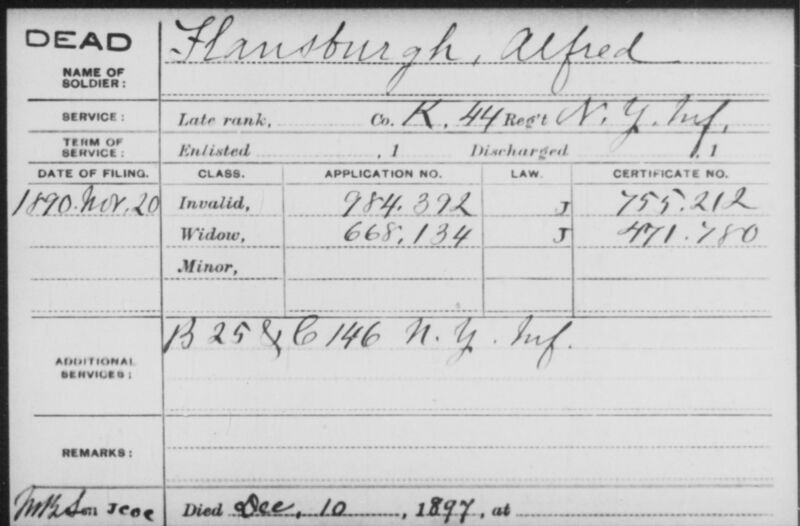 DEAD
NAME OF SOLDIER: Flansburgh, Alfred
SERVICE: Late rank, Co. K, 44 Reg't N. Y. Inf.
TERM OF SERVICE: Enlisted , 1 Discharged , 1
DATE OF FILING. CLASS. APPLICATION NO. LAW. CERTIFICATE NO.
1890. Nov. 20 Invalid, 984.392 J 755.212
Widow, 668,134 J 471.780
Minor,
ADDITIONAL SERVICES: B 25 & C 146 N. Y. Inf.
REMARKS:
Died Dec, 10, 1897, at